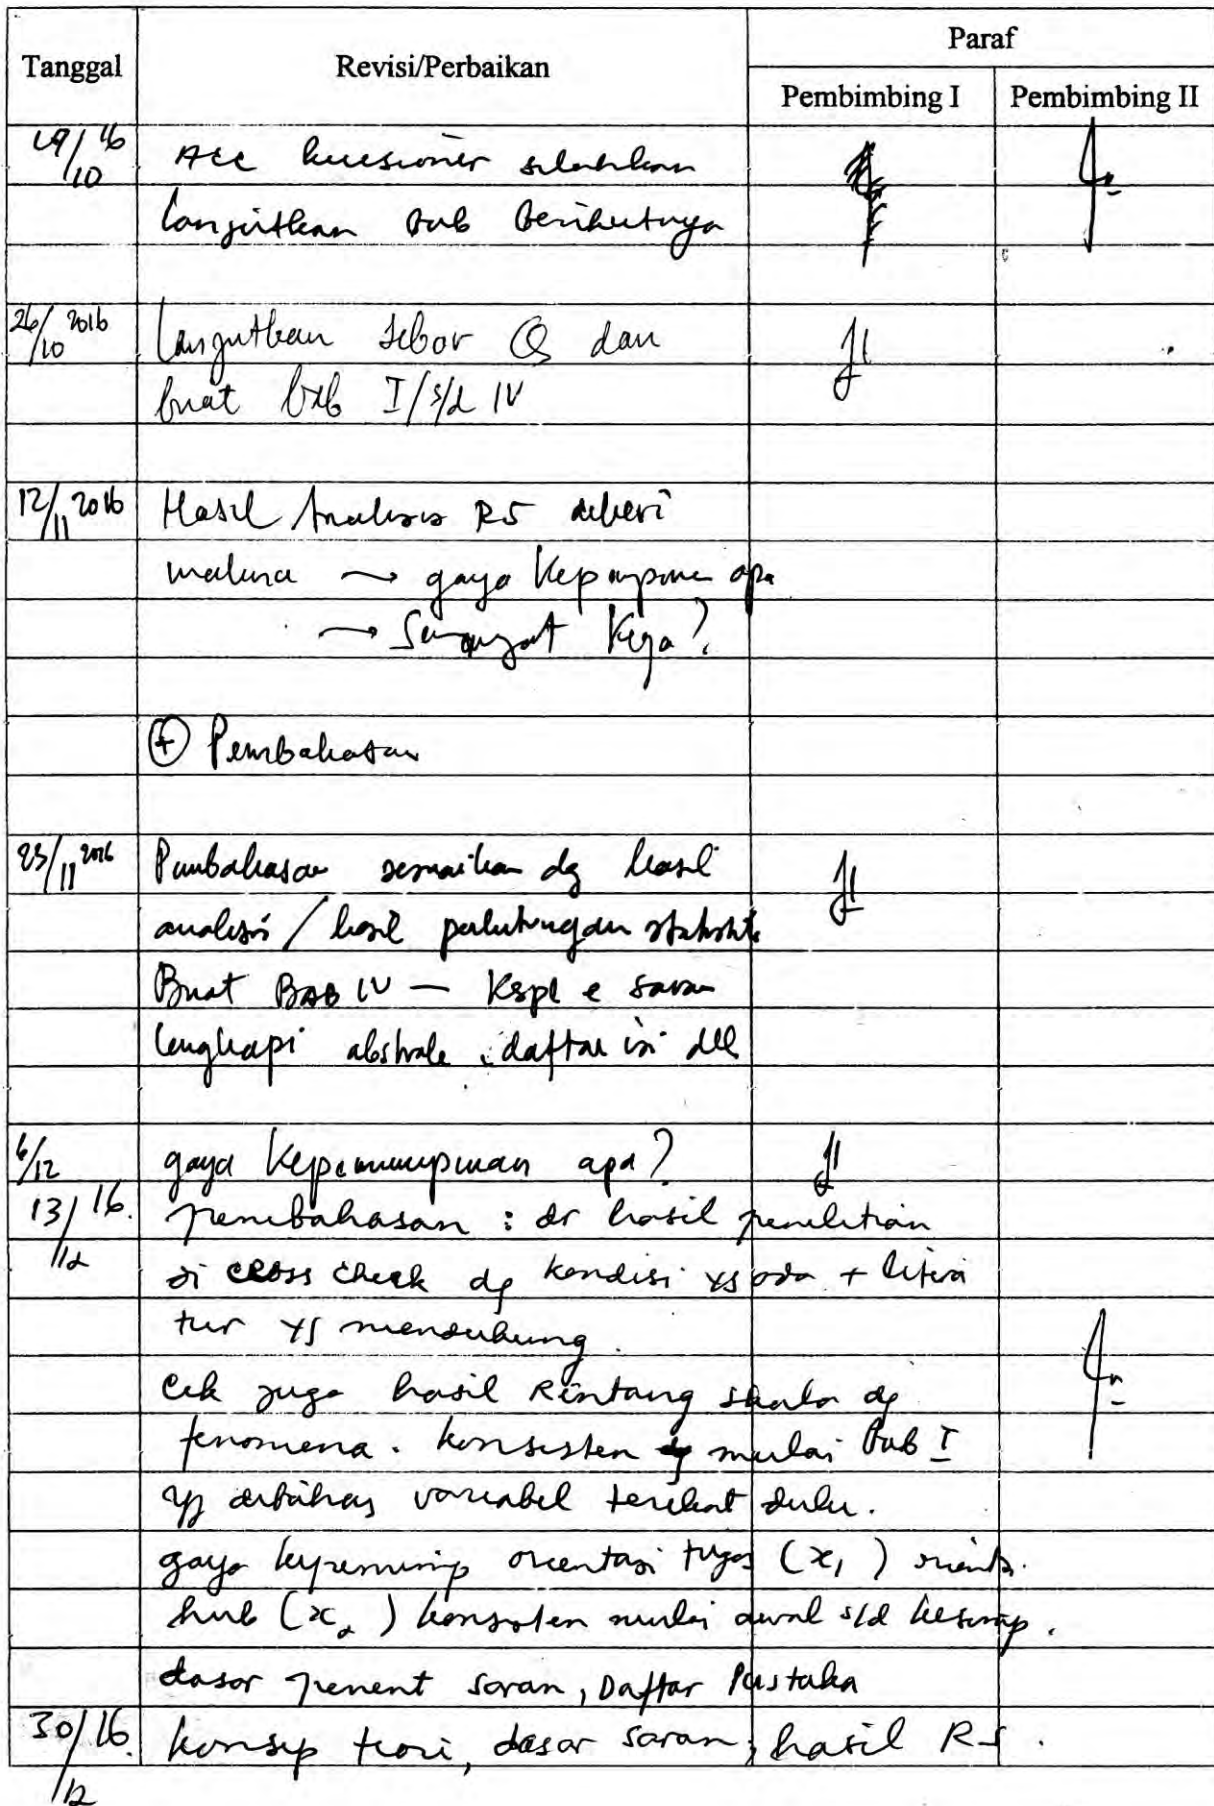 Tanggal Revisi/Perbaikan Paraf
Pembimbing I Pembimbing II
19/10 16 Acc kuesioner silahkan
lanjutkan bab berikutnya
26/10 2016 Lanjutkan sebar Q dan
buat bab I/s/d IV
12/11 2016 Hasil Analisis RS diberi
makna → gaya Kepimpinan apa
→ Semangat Kerja?
+ Pembahasan
23/11 2016 Pembahasan sesuaikan dg hasil
analisis / hasil perhitungan statistik
Buat BAB IV — Kspl e saran
lengkapi abstrak, daftar isi dll
6/12 gaya Kepemimpinan apa?
13/12 16. pembahasan : dr hasil penelitian
di cross check dg kondisi yg ada + litera
tur yg mendukung.
cek juga hasil Rentang skala dg
fenomena. konsisten mulai bab I
yg dibahas variabel terikat dulu.
gaya kepemimp orientasi tugas (x₁) orient.
hub (x₂) konsisten mulai awal s/d kesimp.
dasar penent saran, Daftar Pustaka
30/12 16. konsep teori, dasar saran, hasil RS.